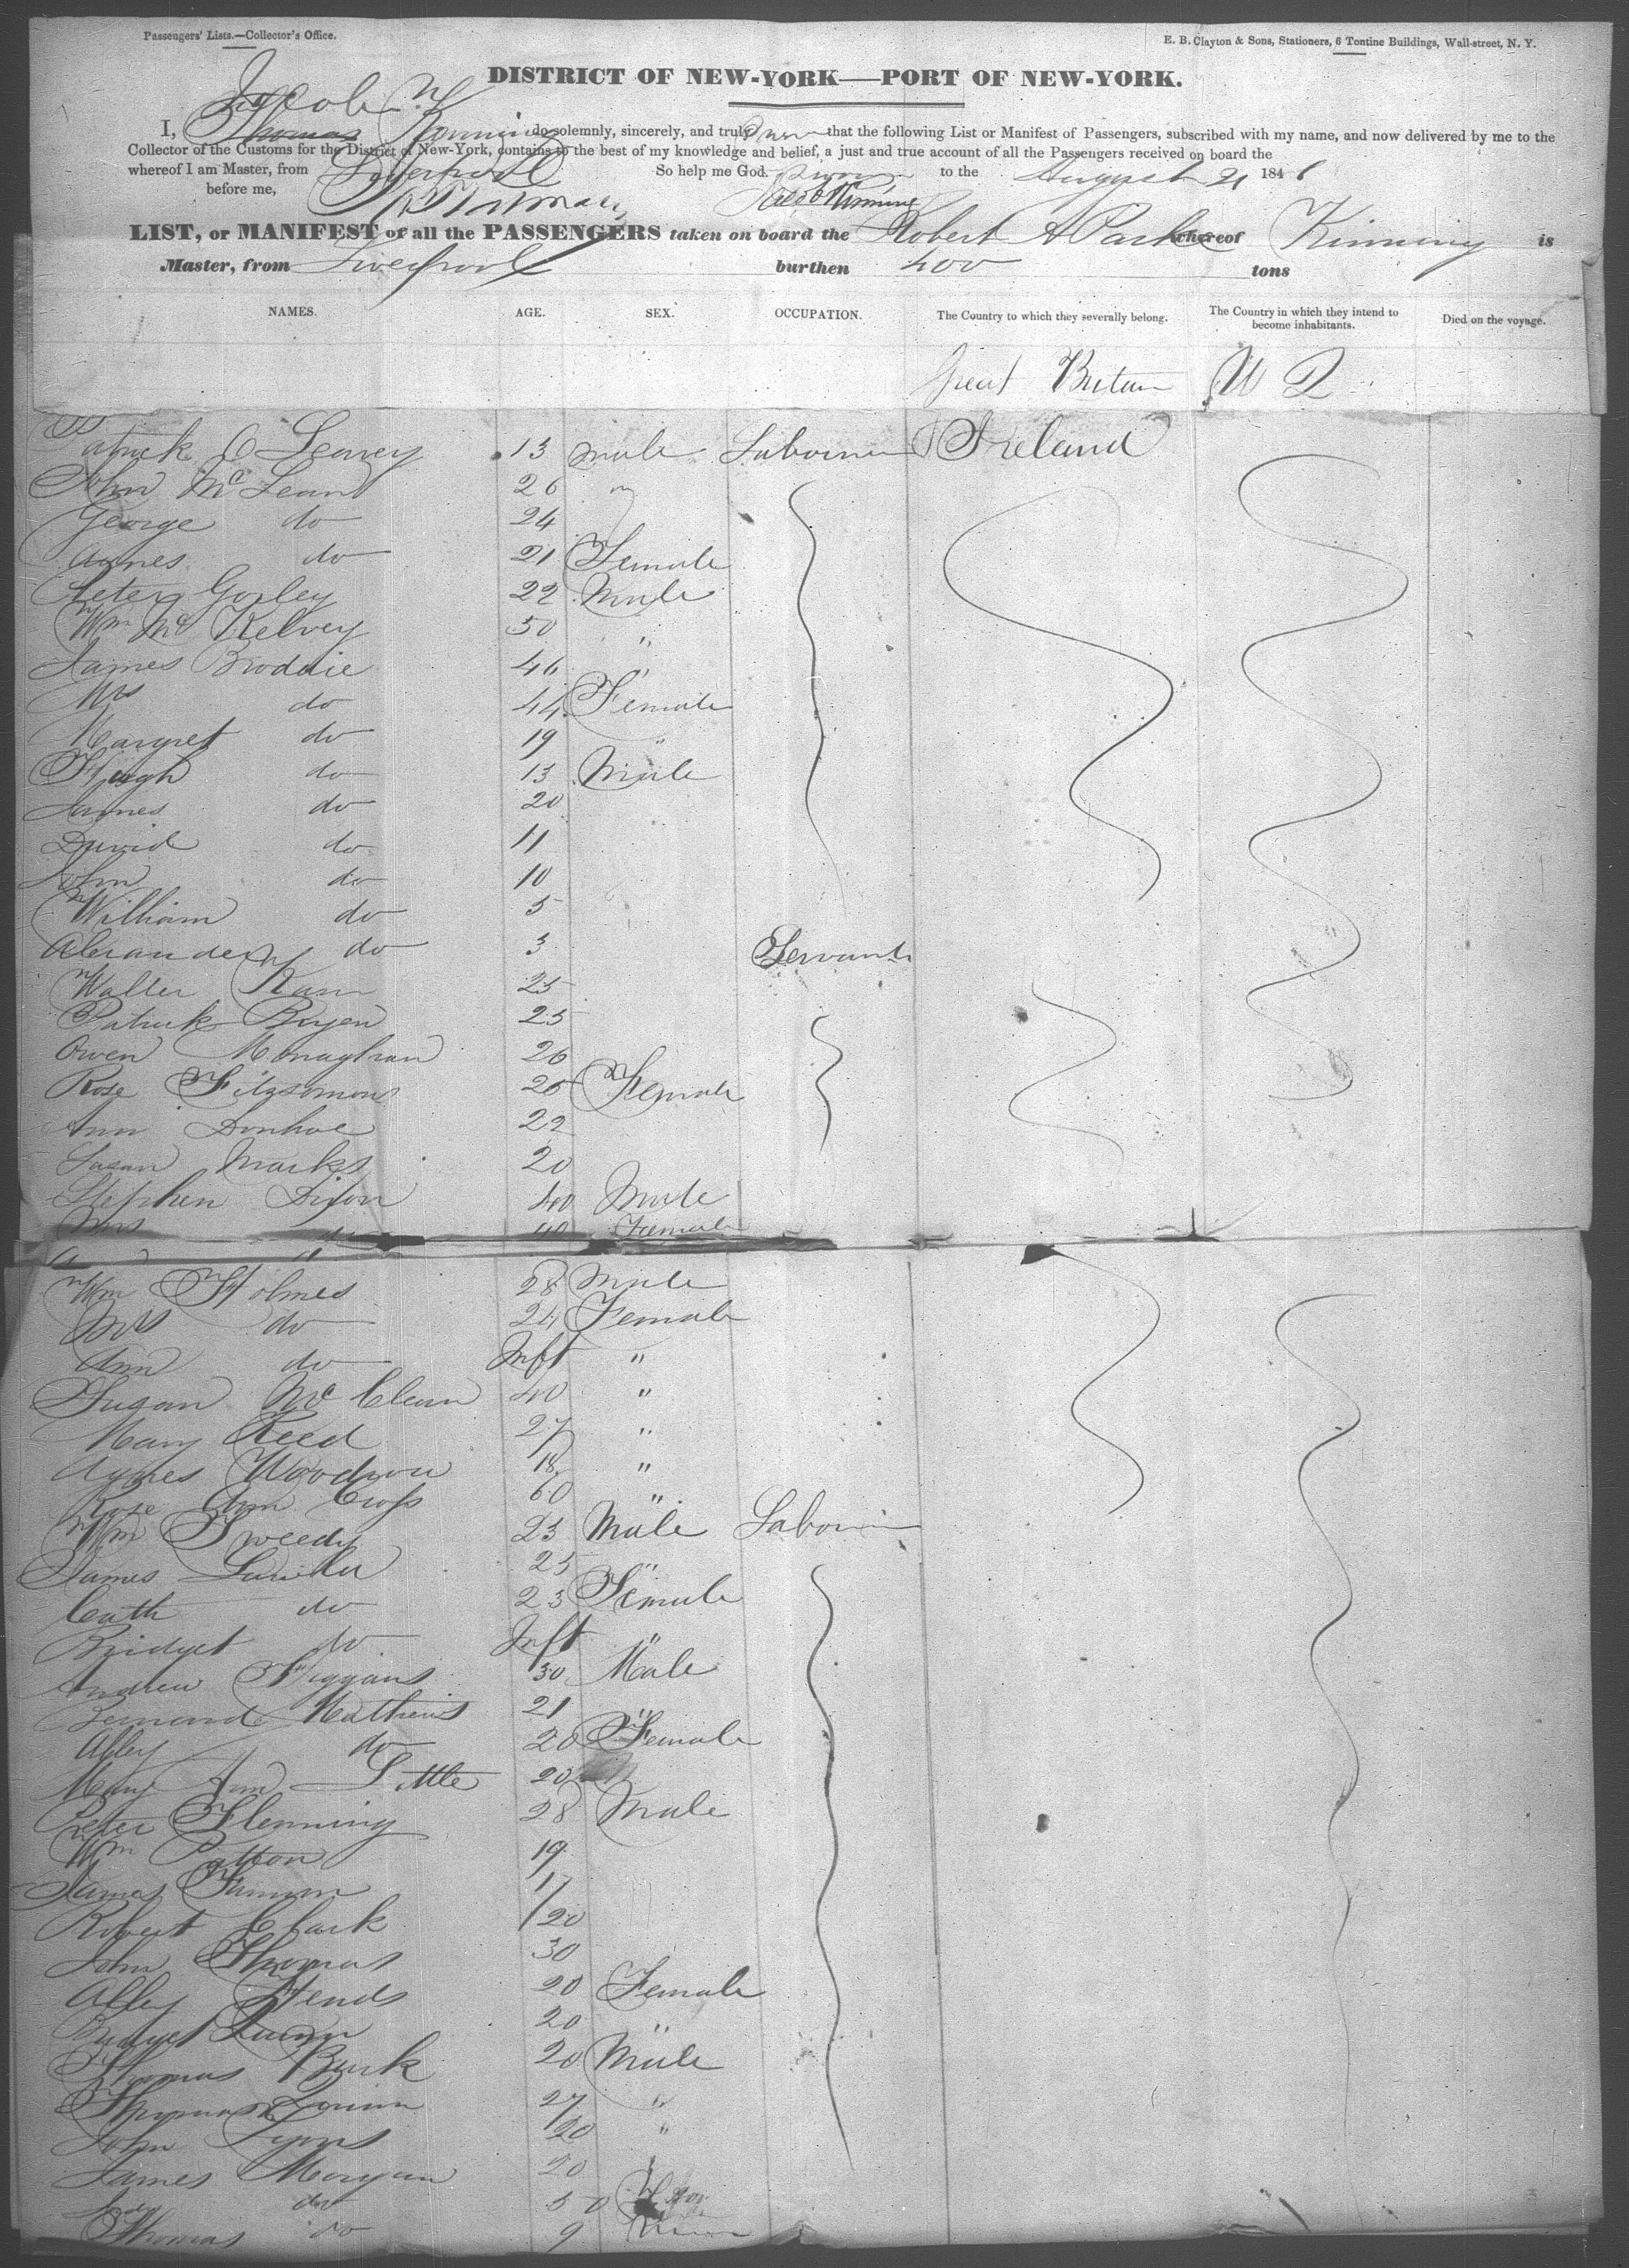 Passengers' Lists.—Collector's Office.
E. B. Clayton & Sons, Stationers, 6 Tontine Buildings, Wall-street, N. Y.
DISTRICT OF NEW-YORK—PORT OF NEW-YORK.
Jacob
I, Thomas Kinning do solemnly, sincerely, and truly swear that the following List or Manifest of Passengers, subscribed with my name, and now delivered by me to the
Collector of the Customs for the District of New-York, contains to the best of my knowledge and belief, a just and true account of all the Passengers received on board the
whereof I am Master, from Liverpool So help me God. Sworn to the August 21 1846
before me, Jacob Kinning
LIST, or MANIFEST of all the PASSENGERS taken on board the Robert A Parke whereof Kinning is
Master, from Liverpool burthen 400 tons
NAMES. AGE. SEX. OCCUPATION. The Country to which they severally belong. The Country in which they intend to become inhabitants. Died on the voyage.
Great Britain U S
Patrick O Leavey 13 male Labourer Ireland
John McLean 26 "
George do 24
Agnes do 21 Female
Peter Gorley 22 Male
Wm Mc Kelvey 50 "
James Broddie 46 "
Mrs do 44 Female
Margret do 19 "
Hugh do 13 Male
James do 20
David do 11
John do 10
William do 5
Alexander do 3 Servants
Walter Kam 25
Patrick Bryen 25
Owen Monaghan 26
Rose Fitzsomons 25 Female
Ann Donhoe 22
Susan Marks 20
Stephen Dixon 40 Male
Mrs do 40 Female
Wm Holmes 28 Male
Mrs do 24 Female
Ann do Inft "
Susan Mc Clean 40 "
Mary Reed 27 "
Agnes Woodrow 18 "
Rose Ann Cross 60 "
Wm Tweedy 23 Male Labourer
James 25 "
Cath do 23 Female
Bridget do Inft "
Andrew Higgans 30 Male
Bernard Mathews 21 "
Alley do 20 Female
Mary Ann Little 20
Peter Flemming 28 Male
Wm Patton 19
James Fannon 17
Robert Clark 20
John Thomas 30
Alley Hends 20 Female
Bridget Quinn 20 "
Thomas Burk 20 Male
Thomas Quinn 27 "
John Lyons 20 "
James Morgan 20
do 50
Thomas do 9